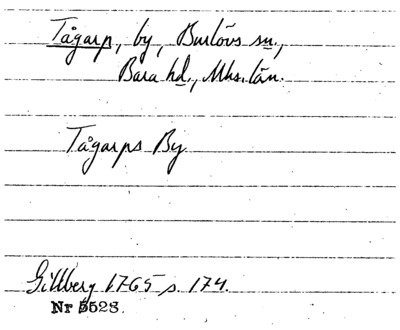 Tågarp, by, Burlövs sn.,
Bara hd., Mhs. län.
Tågarps By
Gillberg 1765 s. 174.
Nr 5528.